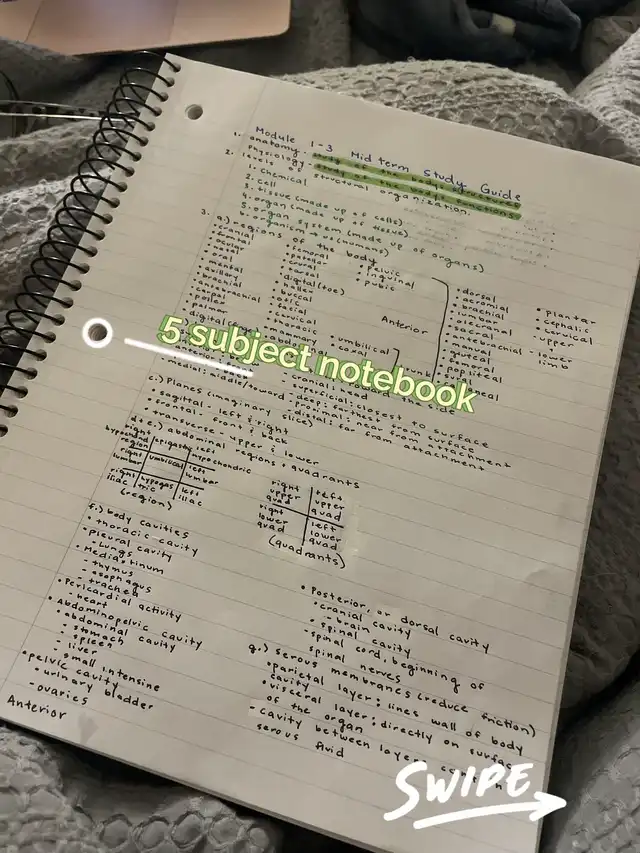 Module 1-3 Midterm Study Guide
1. anatomy - study of the body structures
physiology - study of the body's functions
2. levels of structural organization.
1. Chemical
2. cell
3. tissue (made up of cells)
4. organ (made up of tissue)
5. organ system (made up of organs)
6. organism (humans)
3. a.) regions of the body
• cranial
• frontal
• ocular
• nasal
• oral
• mental
• axillary
• brachial
• antebrachial
• pollex
• palmar
• femoral
• patellar
• crural
• tarsal
• digital (toe)
• hallux
• buccal
• otic
• facial
• thoracic
• mammary
• umbilical
• coxal
• pelvic
• inguinal
• pubic
Anterior
• dorsal
• acromial
• brachial
• lumbar
• olecranal
• sacral
• antebrachial
• manual
• gluteal
• popliteal
• plantar
• cephalic
• cervical
• upper
- lower
limb
5 subject notebook
- superficial: closest to surface
- deep: farthest from surface
- proximal: near from attachment
- distal: far from attachment
c.) Planes (imaginary slice)
• sagittal: left & right
• frontal: front & back
• transverse: upper & lower
d+e.) abdominal regions & quadrants
right hypochond region
epigast
left hypochondric
right lumbar
umbilical
left lumbar
right iliac
hypogastric
left iliac
(region)
right upper quad
left upper quad
right lower quad
left lower quad
(quadrants)
f.) body cavities
• thoracic cavity
• pleural cavity
- lungs
• Mediastinum
- thymus
- esophagus
- trachea
• Pericardial activity
- heart
• Abdominopelvic cavity
• abdominal cavity
- stomach
- spleen
- liver
- small intensine
• pelvic cavity
• urinary bladder
- ovaries
Anterior
• Posterior, or dorsal cavity
• cranial cavity
- brain
• spinal cavity
- spinal cord, beginning of
spinal nerves
g.) serous membranes (reduce friction)
• parietal layer: lines wall of body
cavity
• visceral layer: directly on surface
of the organ
- cavity between layers
serous fluid
SWIPE